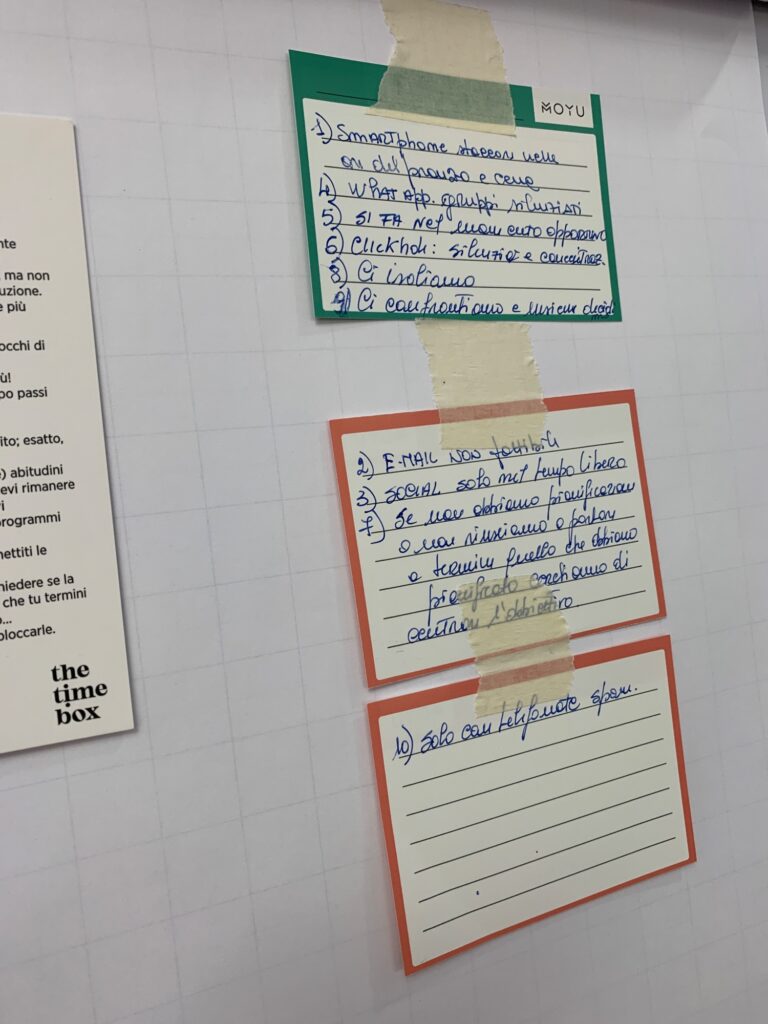 nte
, ma non
uzione.
e più
occhi di
ù!
po passi
ito; esatto,
) abitudini
evi rimanere
ri
rogrammi
mettiti le
hiedere se la
che tu termini
o...
bloccarle.
the
time
box
MOYU
1) SMARTphone staccar nelle
ore del pranzo e cena
4) WHATSAPP. gruppi silenziati
5) SI FA nel momento opportuno
6) Clickhole: silenziosi e concentraz.
8) Ci isoliamo
9) Ci confrontiamo e insieme decid
2) E-MAIL NON fattibile
3) SOCIAL solo nel tempo libero
7) Se non abbiamo pianificazion
o non riusciamo a portare
a termine quello che abbiamo
pianificato cerchiamo di
centrare l'obbiettivo.
10) Solo con telefonate spam.